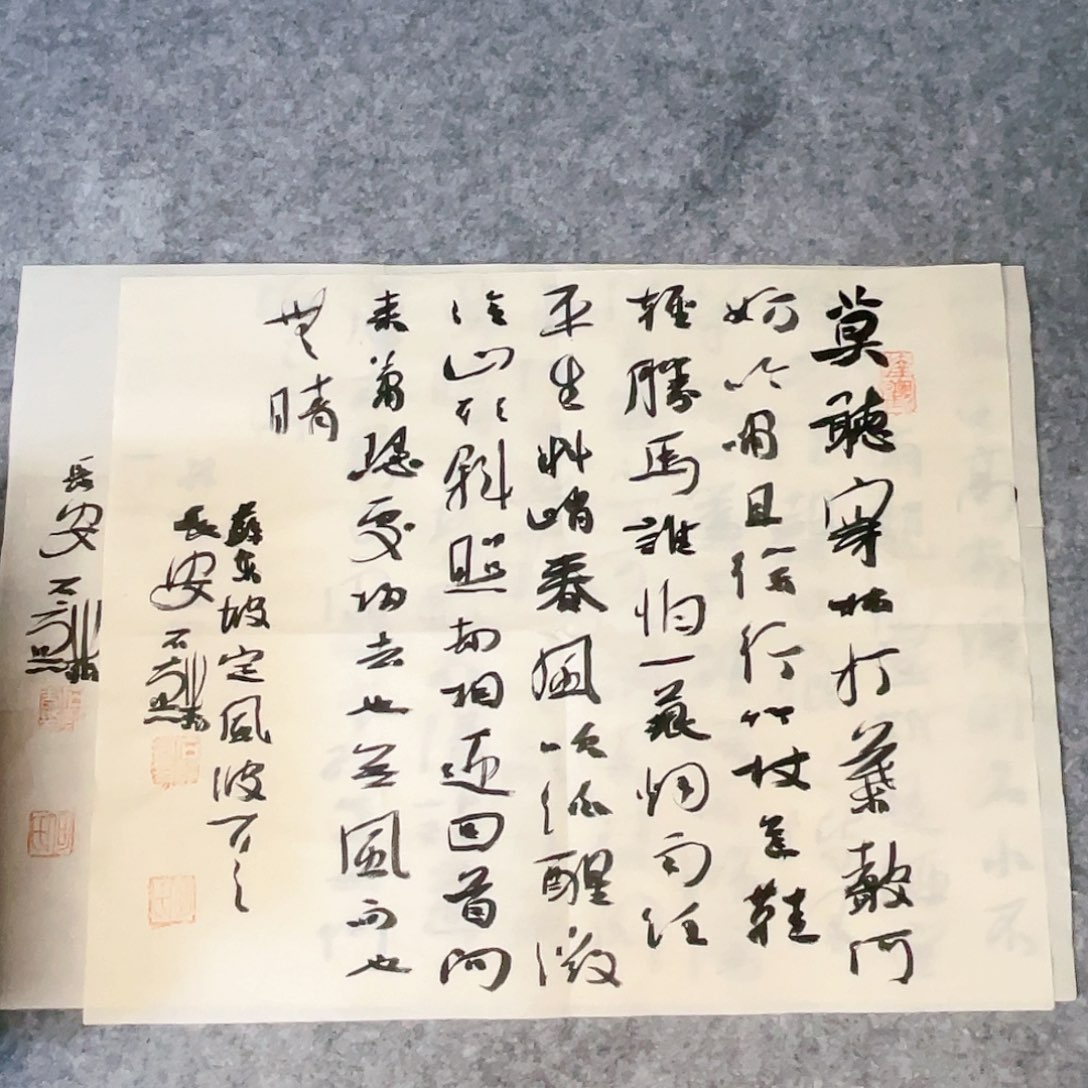 莫聽穿林打葉聲何
妨吟嘯且徐行竹杖芒鞋
輕勝馬誰怕一蓑烟雨任
平生料峭春風吹酒醒微
冷山頭斜照却相迎回首向
来蕭瑟處歸去也無風雨也
無晴
蘇東坡定風波
長安石
長安石